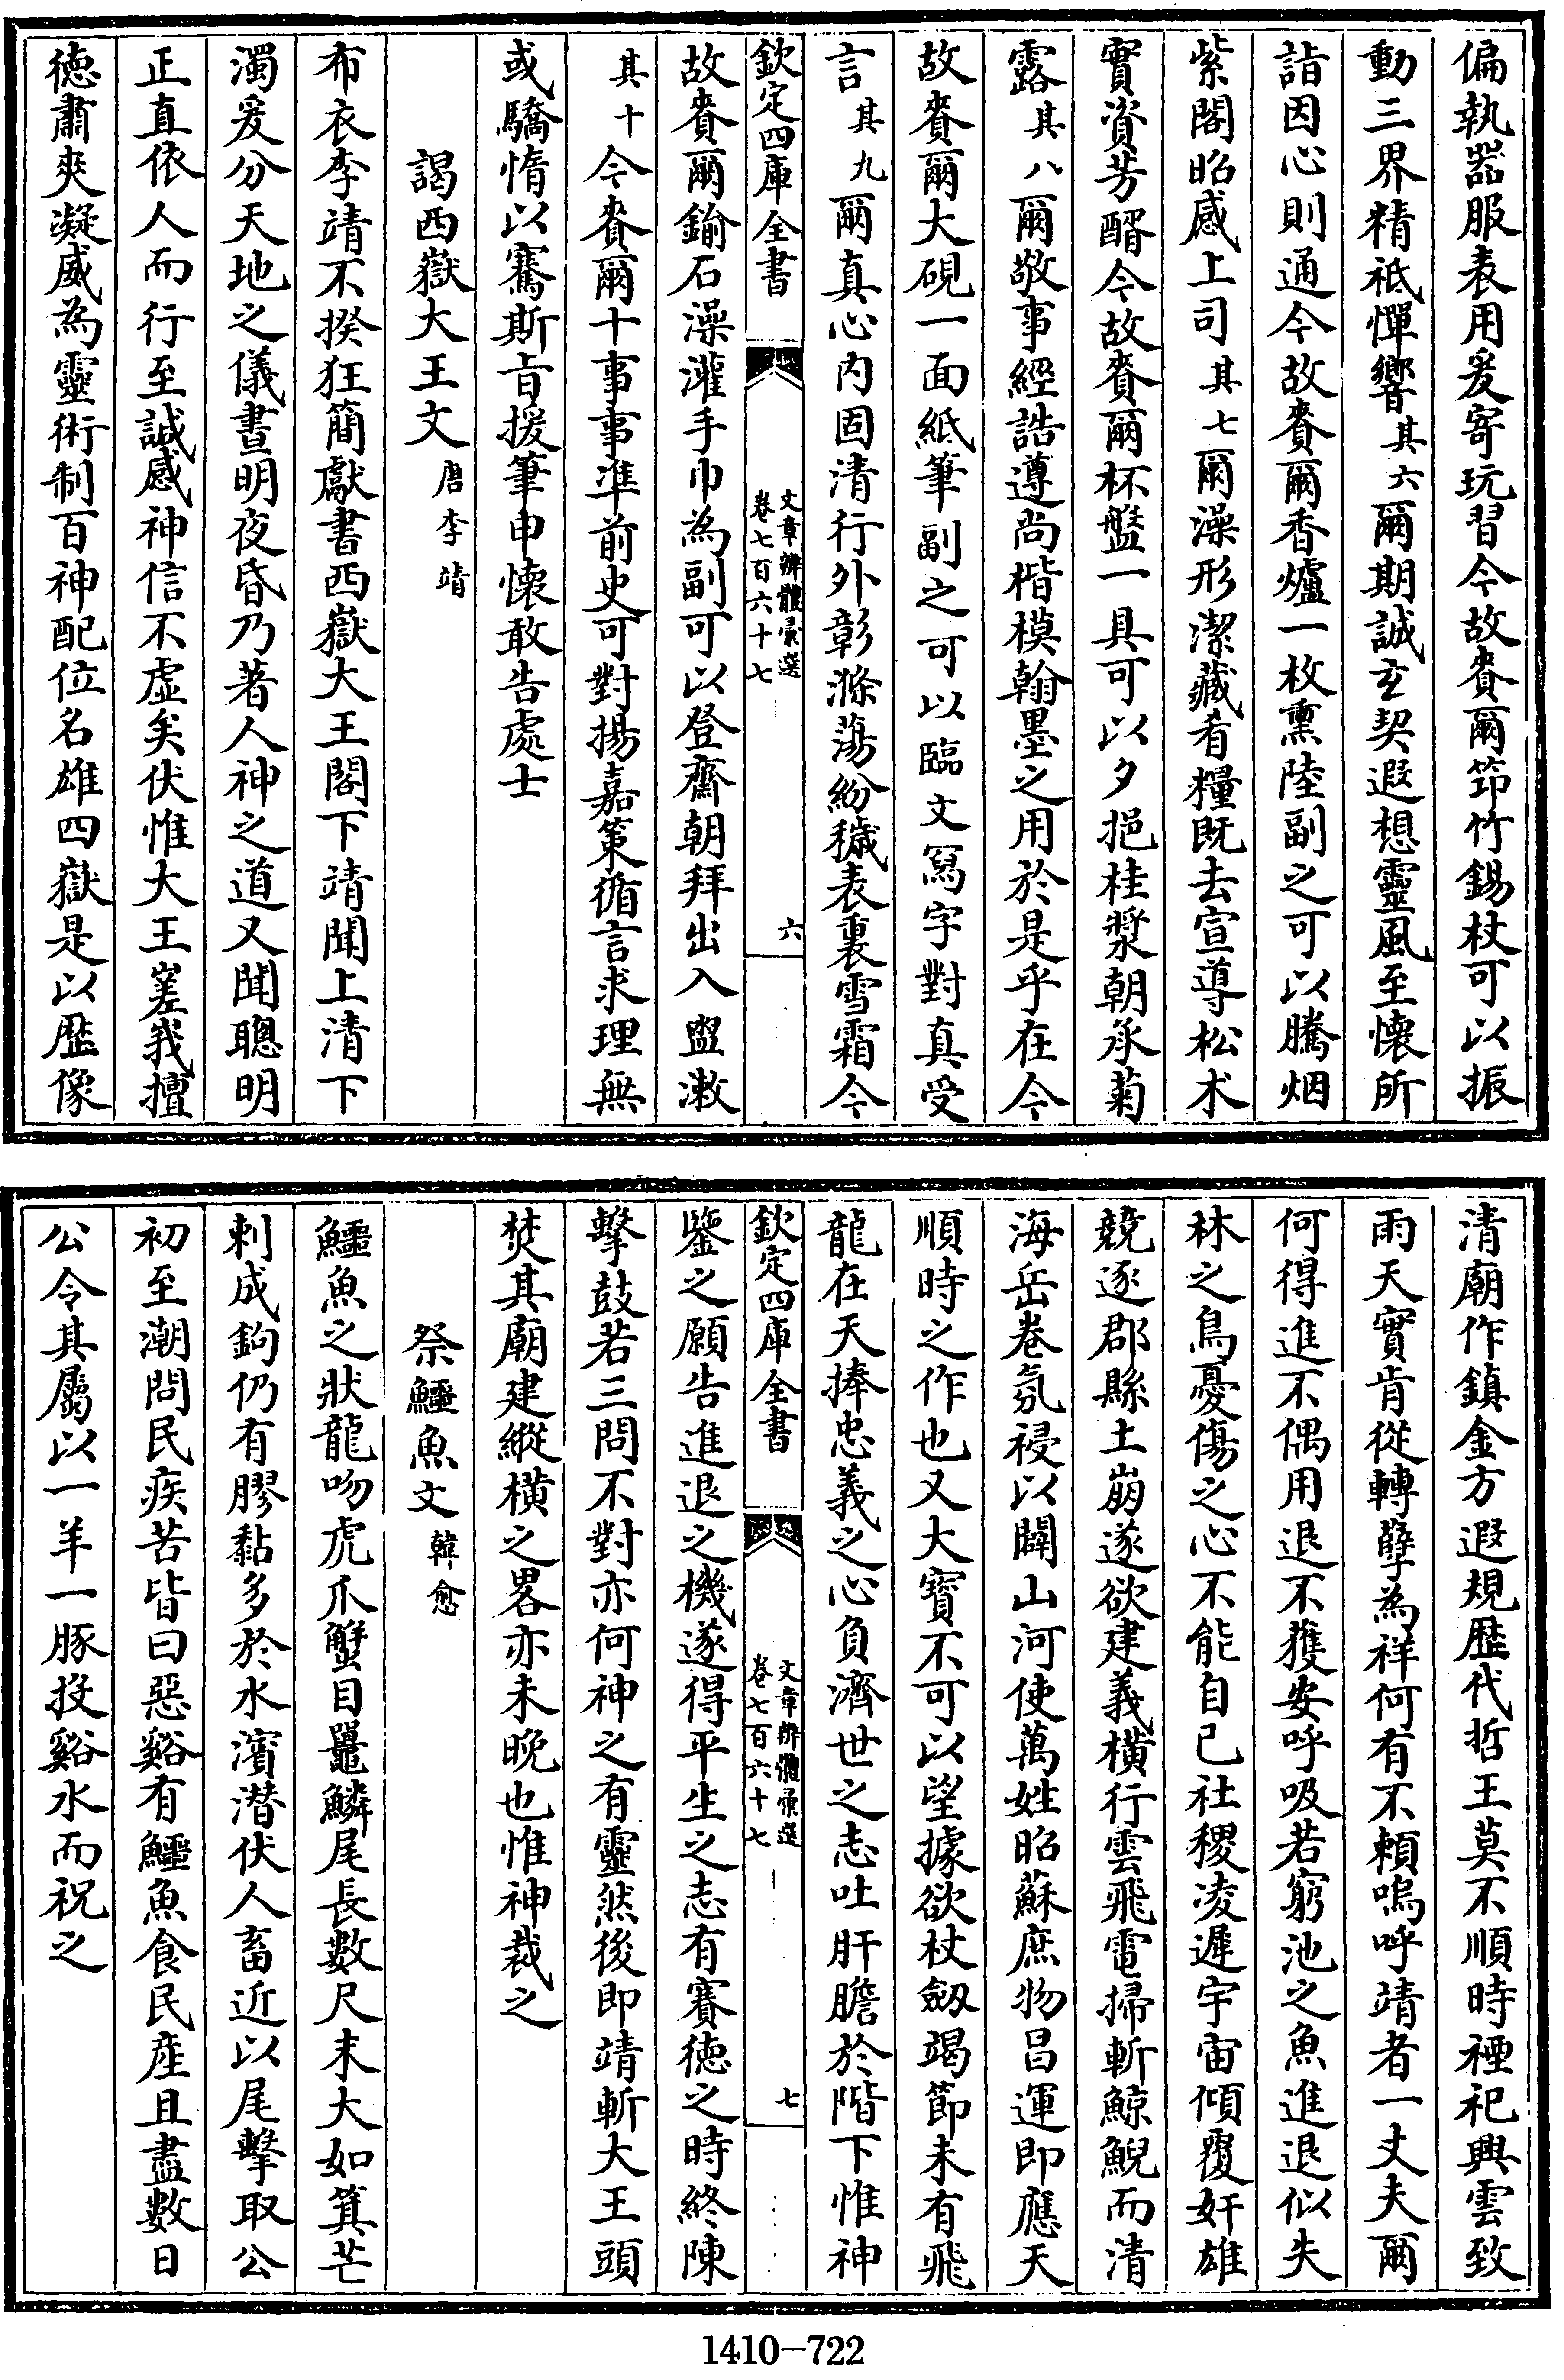 偏執器服表用爰寄玩習今故賚爾筇竹錫杖可以振
動三界精祇憚響其六爾期誠玄契遐想靈風至懷所
詣因心則通今故賚爾香爐一枚熏陸副之可以騰烟
紫閣昭感上司其七爾澡形潔藏肴糧既去宣導松术
實資芳醑今故賚爾杯盤一具可以夕挹桂漿朝承菊
露其八爾敬事經誥遵尚楷模翰墨之用於是乎在今
故賚爾大硯一面紙筆副之可以臨文寫字對真受
言其九爾真心内固清行外彰滌蕩紛穢表裏雪霜今
欽定四庫全書
文章辨體彙選
卷七百六十七
六
故賚爾鍮石澡灌手巾為副可以登齋朝拜出入盥漱
其十今賚爾十事事準前史可對揚嘉策循言求理無
或驕惰以騫斯旨援筆申懷敢告處士
謁西嶽大王文唐李靖
布衣李靖不揆狂簡獻書西嶽大王閣下靖聞上清下
濁爰分天地之儀晝明夜昏乃著人神之道又聞聰明
正直依人而行至誠感神信不虛矣伏惟大王嵳峩擅
德肅爽凝威為靈術制百神配位名雄四嶽是以歷像
清廟作鎮金方遐規歷代哲王莫不順時禋祀興雲致
雨天實肯從轉孽為祥何有不頼嗚呼靖者一丈夫爾
何得進不偶用退不獲安呼吸若窮池之魚進退似失
林之鳥憂傷之心不能自已社稷凌遲宇宙傾覆奸雄
競逐郡縣土崩遂欲建義横行雲飛電掃斬鯨鯢而清
海岳卷氛祲以闢山河使萬姓昭蘇庶物昌運即應天
順時之作也又大寶不可以望據欲杖劔竭節未有飛
龍在天捧忠義之心負濟世之志吐肝膽於階下惟神
欽定四庫全書
文章辨體彙選
卷七百六十七
七
鑒之願告進退之機遂得平生之志有賽徳之時終陳
擊鼓若三問不對亦何神之有靈然後即靖斬大王頭
焚其廟建縱横之畧亦未晚也惟神裁之
祭鱷魚文韓愈
鱷魚之狀龍吻虎爪蟹目鼉鱗尾長數尺末大如箕芒
刺成鉤仍有膠黏多於水濱潜伏人畜近以尾擊取公
初至潮問民疾苦皆曰惡谿有鱷魚食民産且盡數日
公令其屬以一羊一豚投谿水而祝之
1410-722